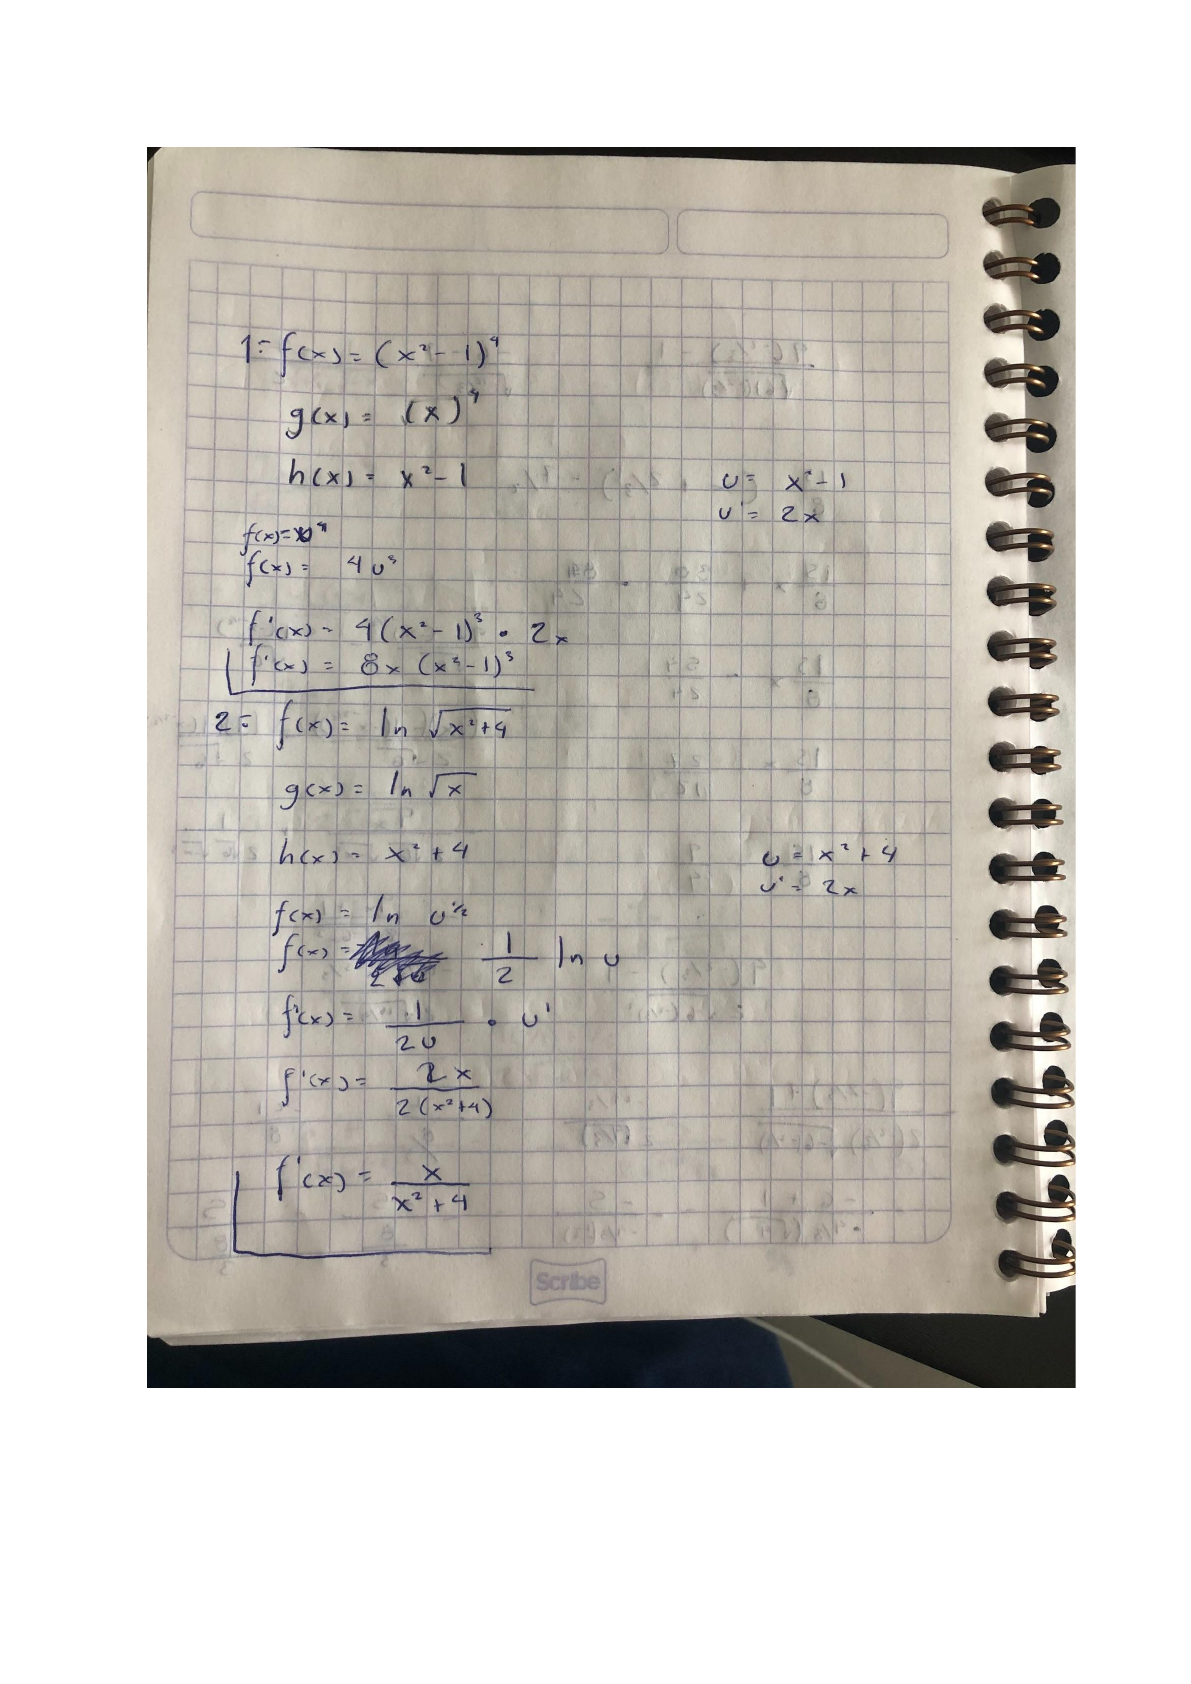 1= f(x) = (x² - 1)⁴
g(x) = (x)⁴
h(x) = x² - 1
u = x² - 1
u' = 2x
f(x) = u⁴
f(x) = 4u³
f'(x) = 4(x² - 1)³ • 2x
f'(x) = 8x (x² - 1)³
2= f(x) = ln √(x²+4)
g(x) = ln √x
h(x) = x² + 4
u = x² + 4
u' = 2x
f(x) = ln u^½
f(x) = 1/2 ln u
f'(x) = 1/2u • u'
f'(x) = 2x/2(x²+4)
f'(x) = x/x² + 4
Scribe